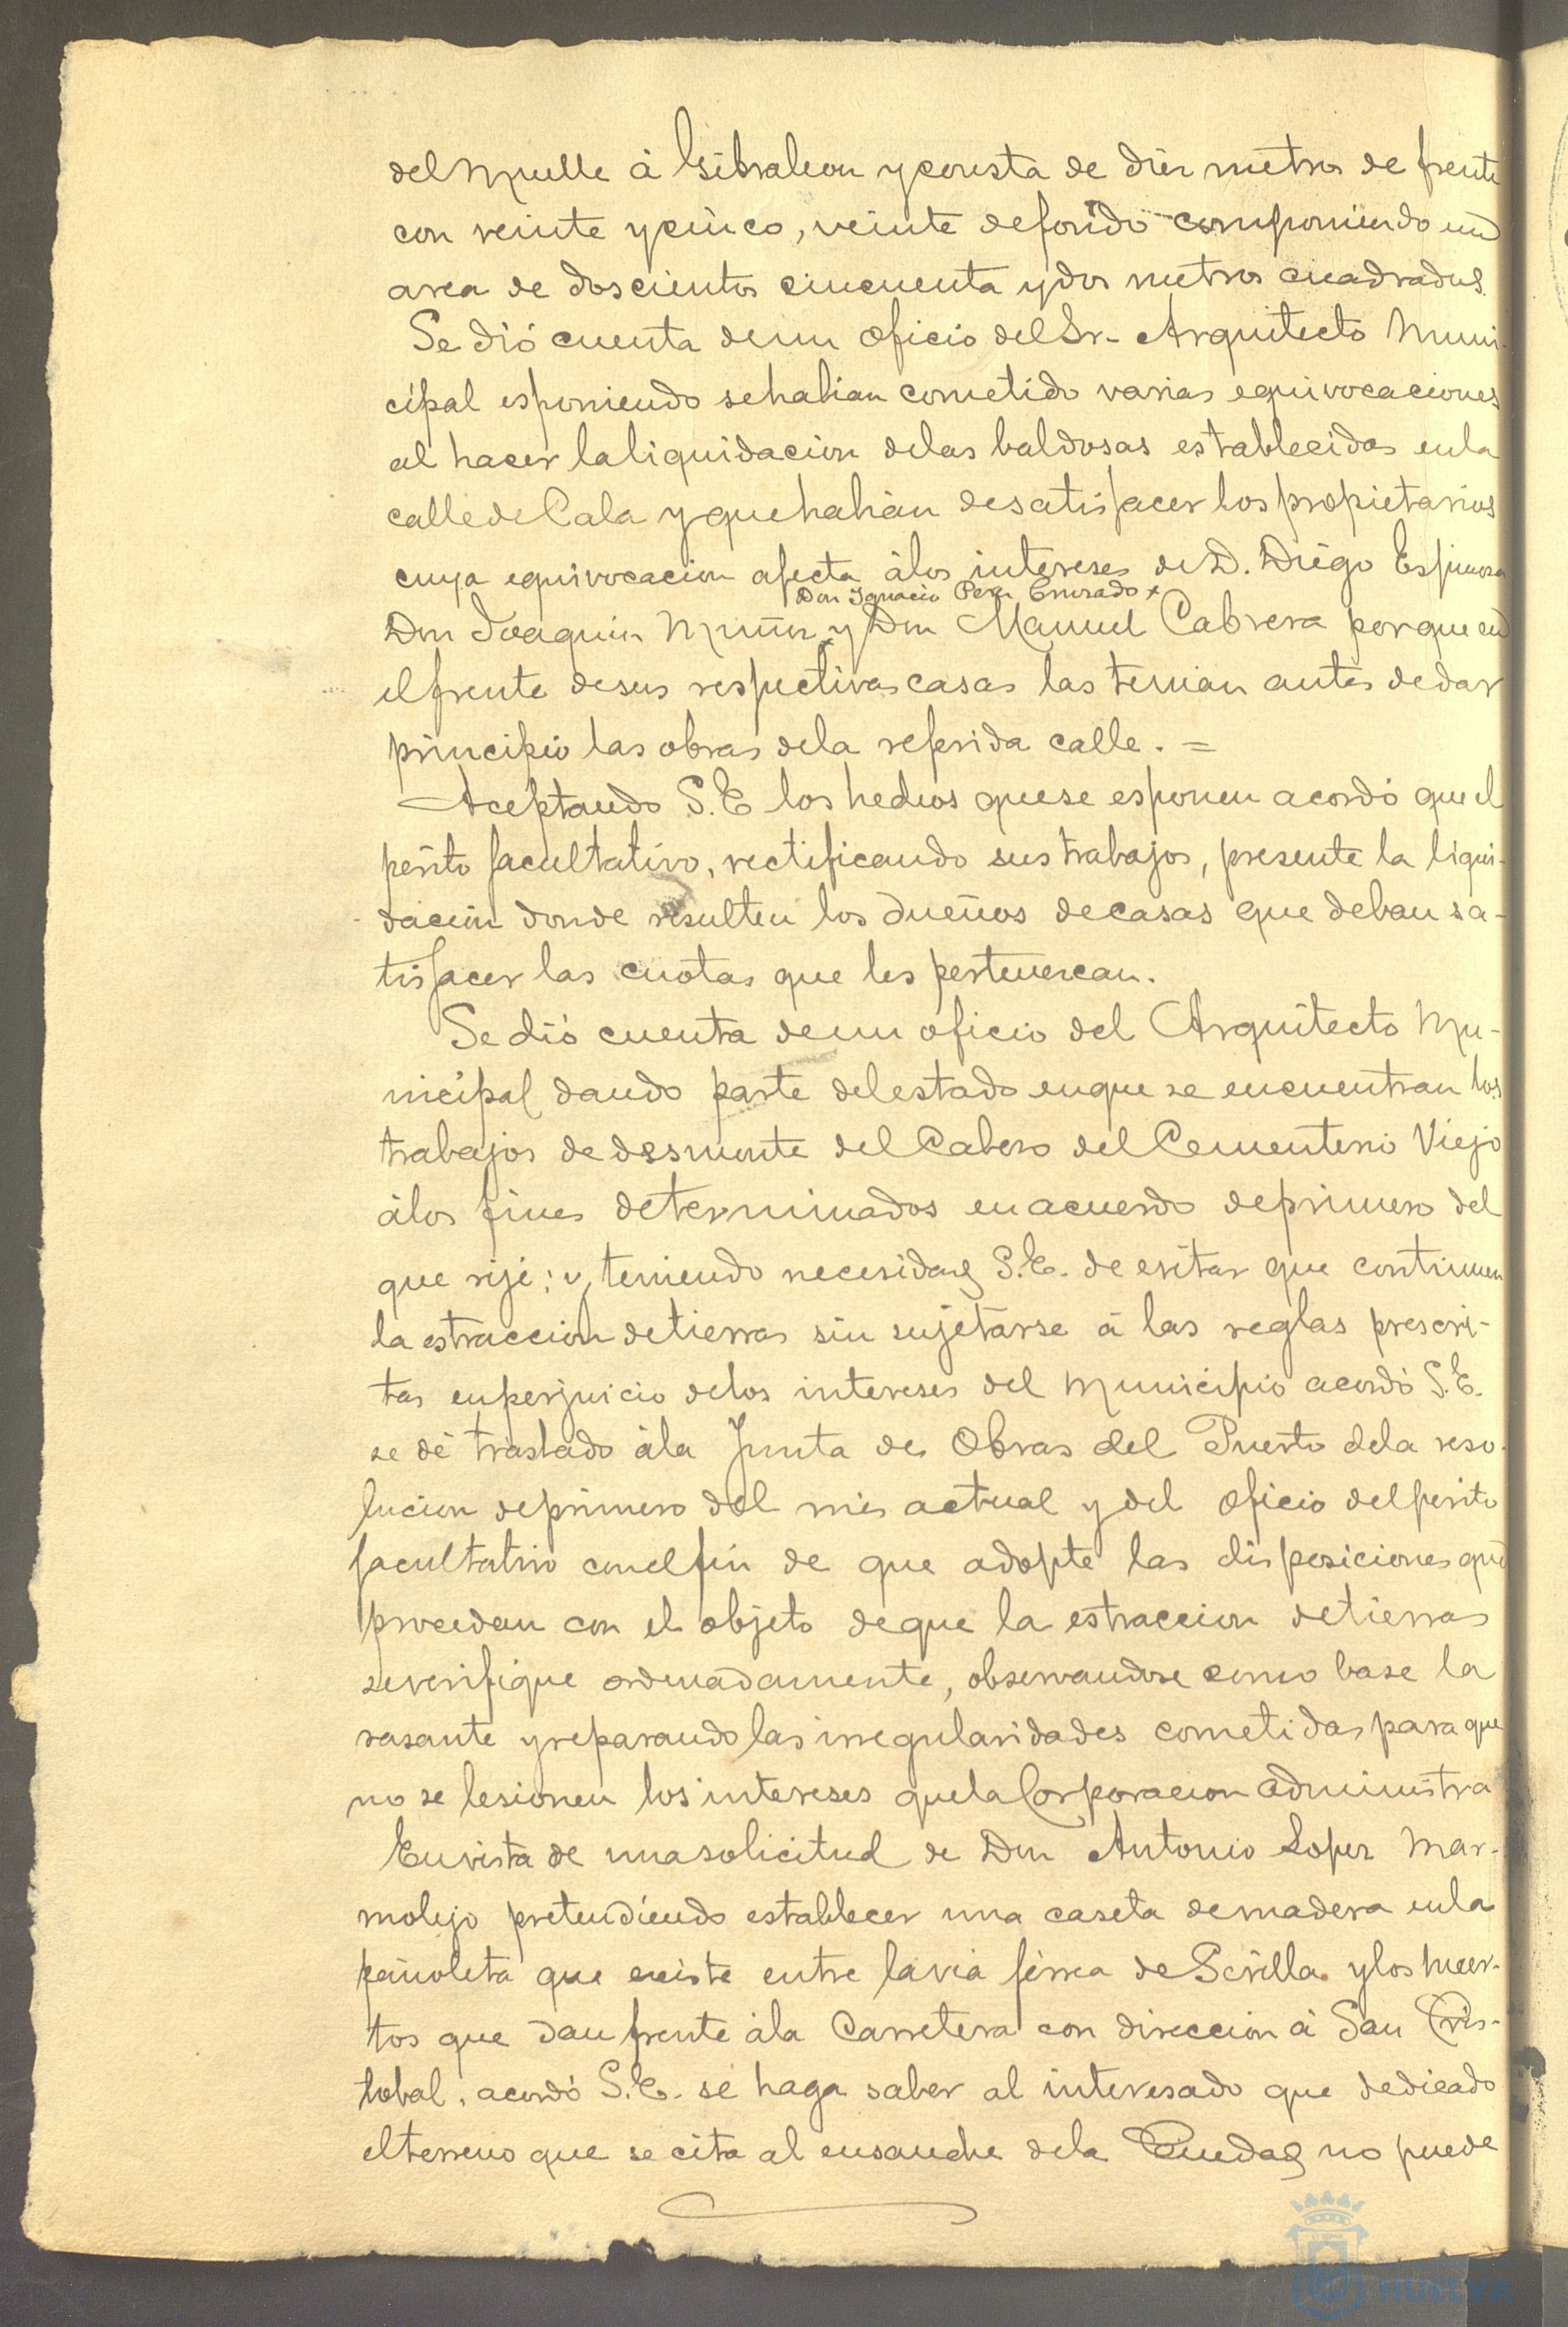 del Muelle á Gibraleon y consta de diez metros de frente
con veinte y cinco, veinte de fondo componiendo un
area de doscientos cincuenta y dos metros cuadrados.
Se dió cuenta de un oficio del Sr. Arquitecto Muni-
cipal esponiendo se habian cometido varias equivocaciones
al hacer la liquidacion de las baldosas establecidas en la
calle de Cala y que habian de satisfacer los propietarios
cuya equivocacion afecta á los intereses de D. Diego Espinosa
Don Ignacio Perez
Don Joaquin Muñoz y Don Manuel Cabrera porque en
el frente de sus respectivas casas las tenian antes de dar
principio las obras de la referida calle. =
Aceptando S.E los hechos que se esponen acordó que el
perito facultativo, rectificando sus trabajos, presente la liqui-
dacion donde resulten los dueños de casas que deban sa-
tisfacer las cuotas que les pertenezcan.
Se dió cuenta de un oficio del Arquitecto Mu-
nicipal dando parte del estado en que se encuentran los
trabajos de desmonte del Cabezo del Cementerio Viejo
á los fines determinados en acuerdo de primero del
que rije: y, teniendo necesidad S.E. de evitar que continuen
la estraccion de tierras sin sujetarse á las reglas prescri-
tas en perjuicio de los intereses del Municipio acordó S.E.
se dé traslado á la Junta de Obras del Puerto de la reso-
lucion de primero del mes actual y del oficio del perito
facultativo con el fin de que adopte las disposiciones que
procedan con el objeto de que la estraccion de tierras
se verifique ordenadamente, observandose como base la
rasante y reparando las irregularidades cometidas para que
no se lesionen los intereses que la Corporacion administra
En vista de una solicitud de Don Antonio Lopez Mar-
molejo pretendiendo establecer una caseta de madera en la
pañoleta que existe entre la via férrea de Sevilla y los huer-
tos que dan frente á la Carretera con direccion á San Cris-
tobal, acordó S.E. se haga saber al interesado que dedicado
el terreno que se cita al ensanche de la Ciudad no puede
HUELVA